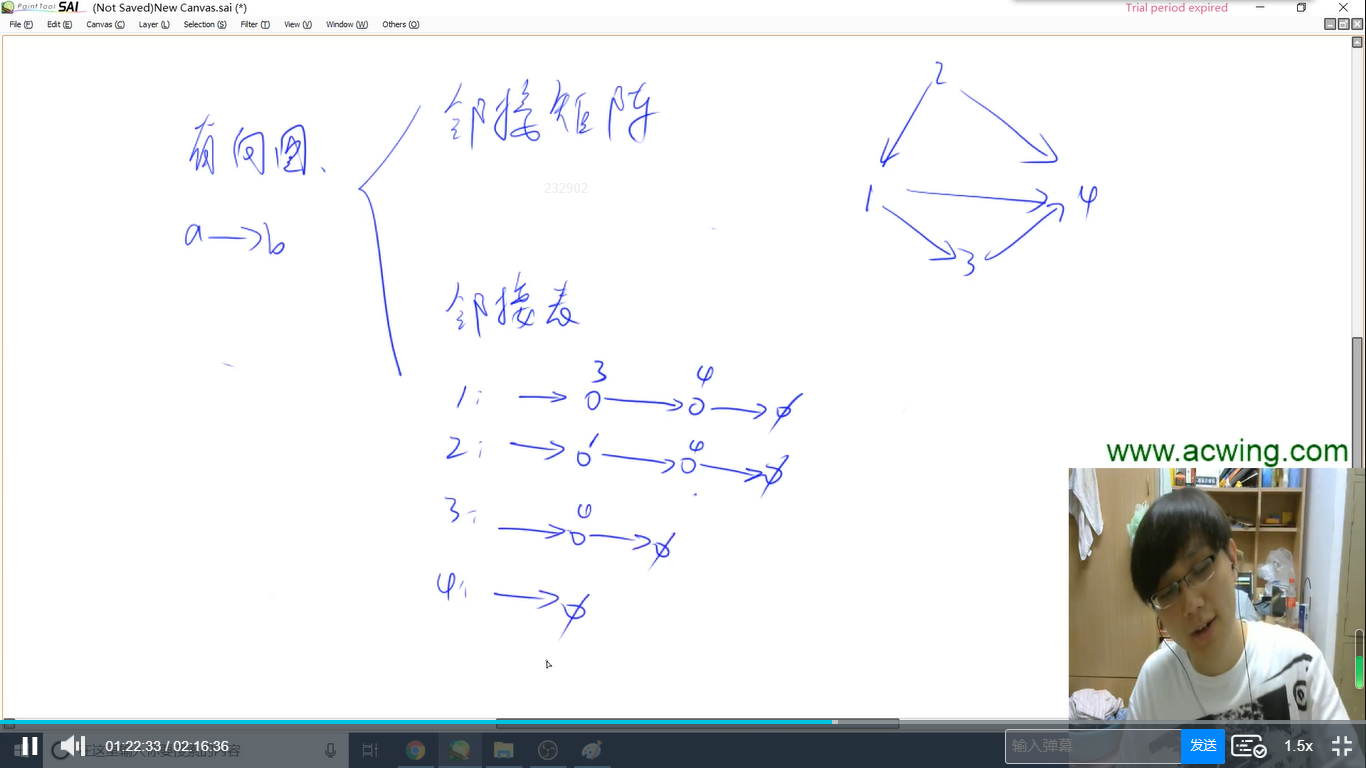 PaintTool SAI (Not Saved)New Canvas.sai (*)
Trial period expired
File (F) Edit (E) Canvas (C) Layer (L) Selection (S) Filter (T) View (V) Window (W) Others (O)
邻接矩阵
有向图、
a → b
232902
邻接表
3 4
1: → O → O → ∅
1 4
2: → O → O → ∅
4
3: → O → ∅
4: → ∅
2
1 4
3
www.acwing.com
在这里输入你要搜索的内容
01:22:33 / 02:16:36
输入弹幕 发送 1.5x